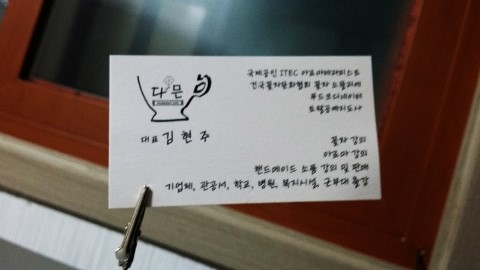 다믄
대표 김현주
국제공인 ITEC 아로마테라피스트
한국꽃차문화협회 꽃차 소믈리에
푸드코디네이터
토탈공예지도사
꽃차 강의
아로마 강의
핸드메이드 소품 강의 및 판매
기업체, 관공서, 학교, 병원, 복지시설, 군부대 출강